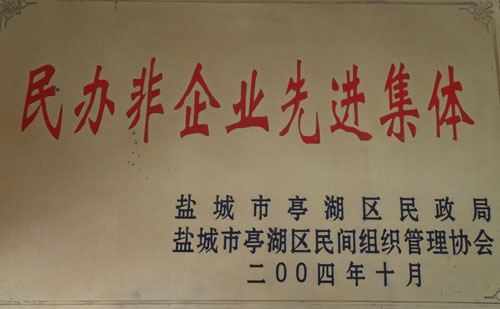 民办非企业先进集体
盐城市亭湖区民政局
盐城市亭湖区民间组织管理协会
二〇〇四年十月